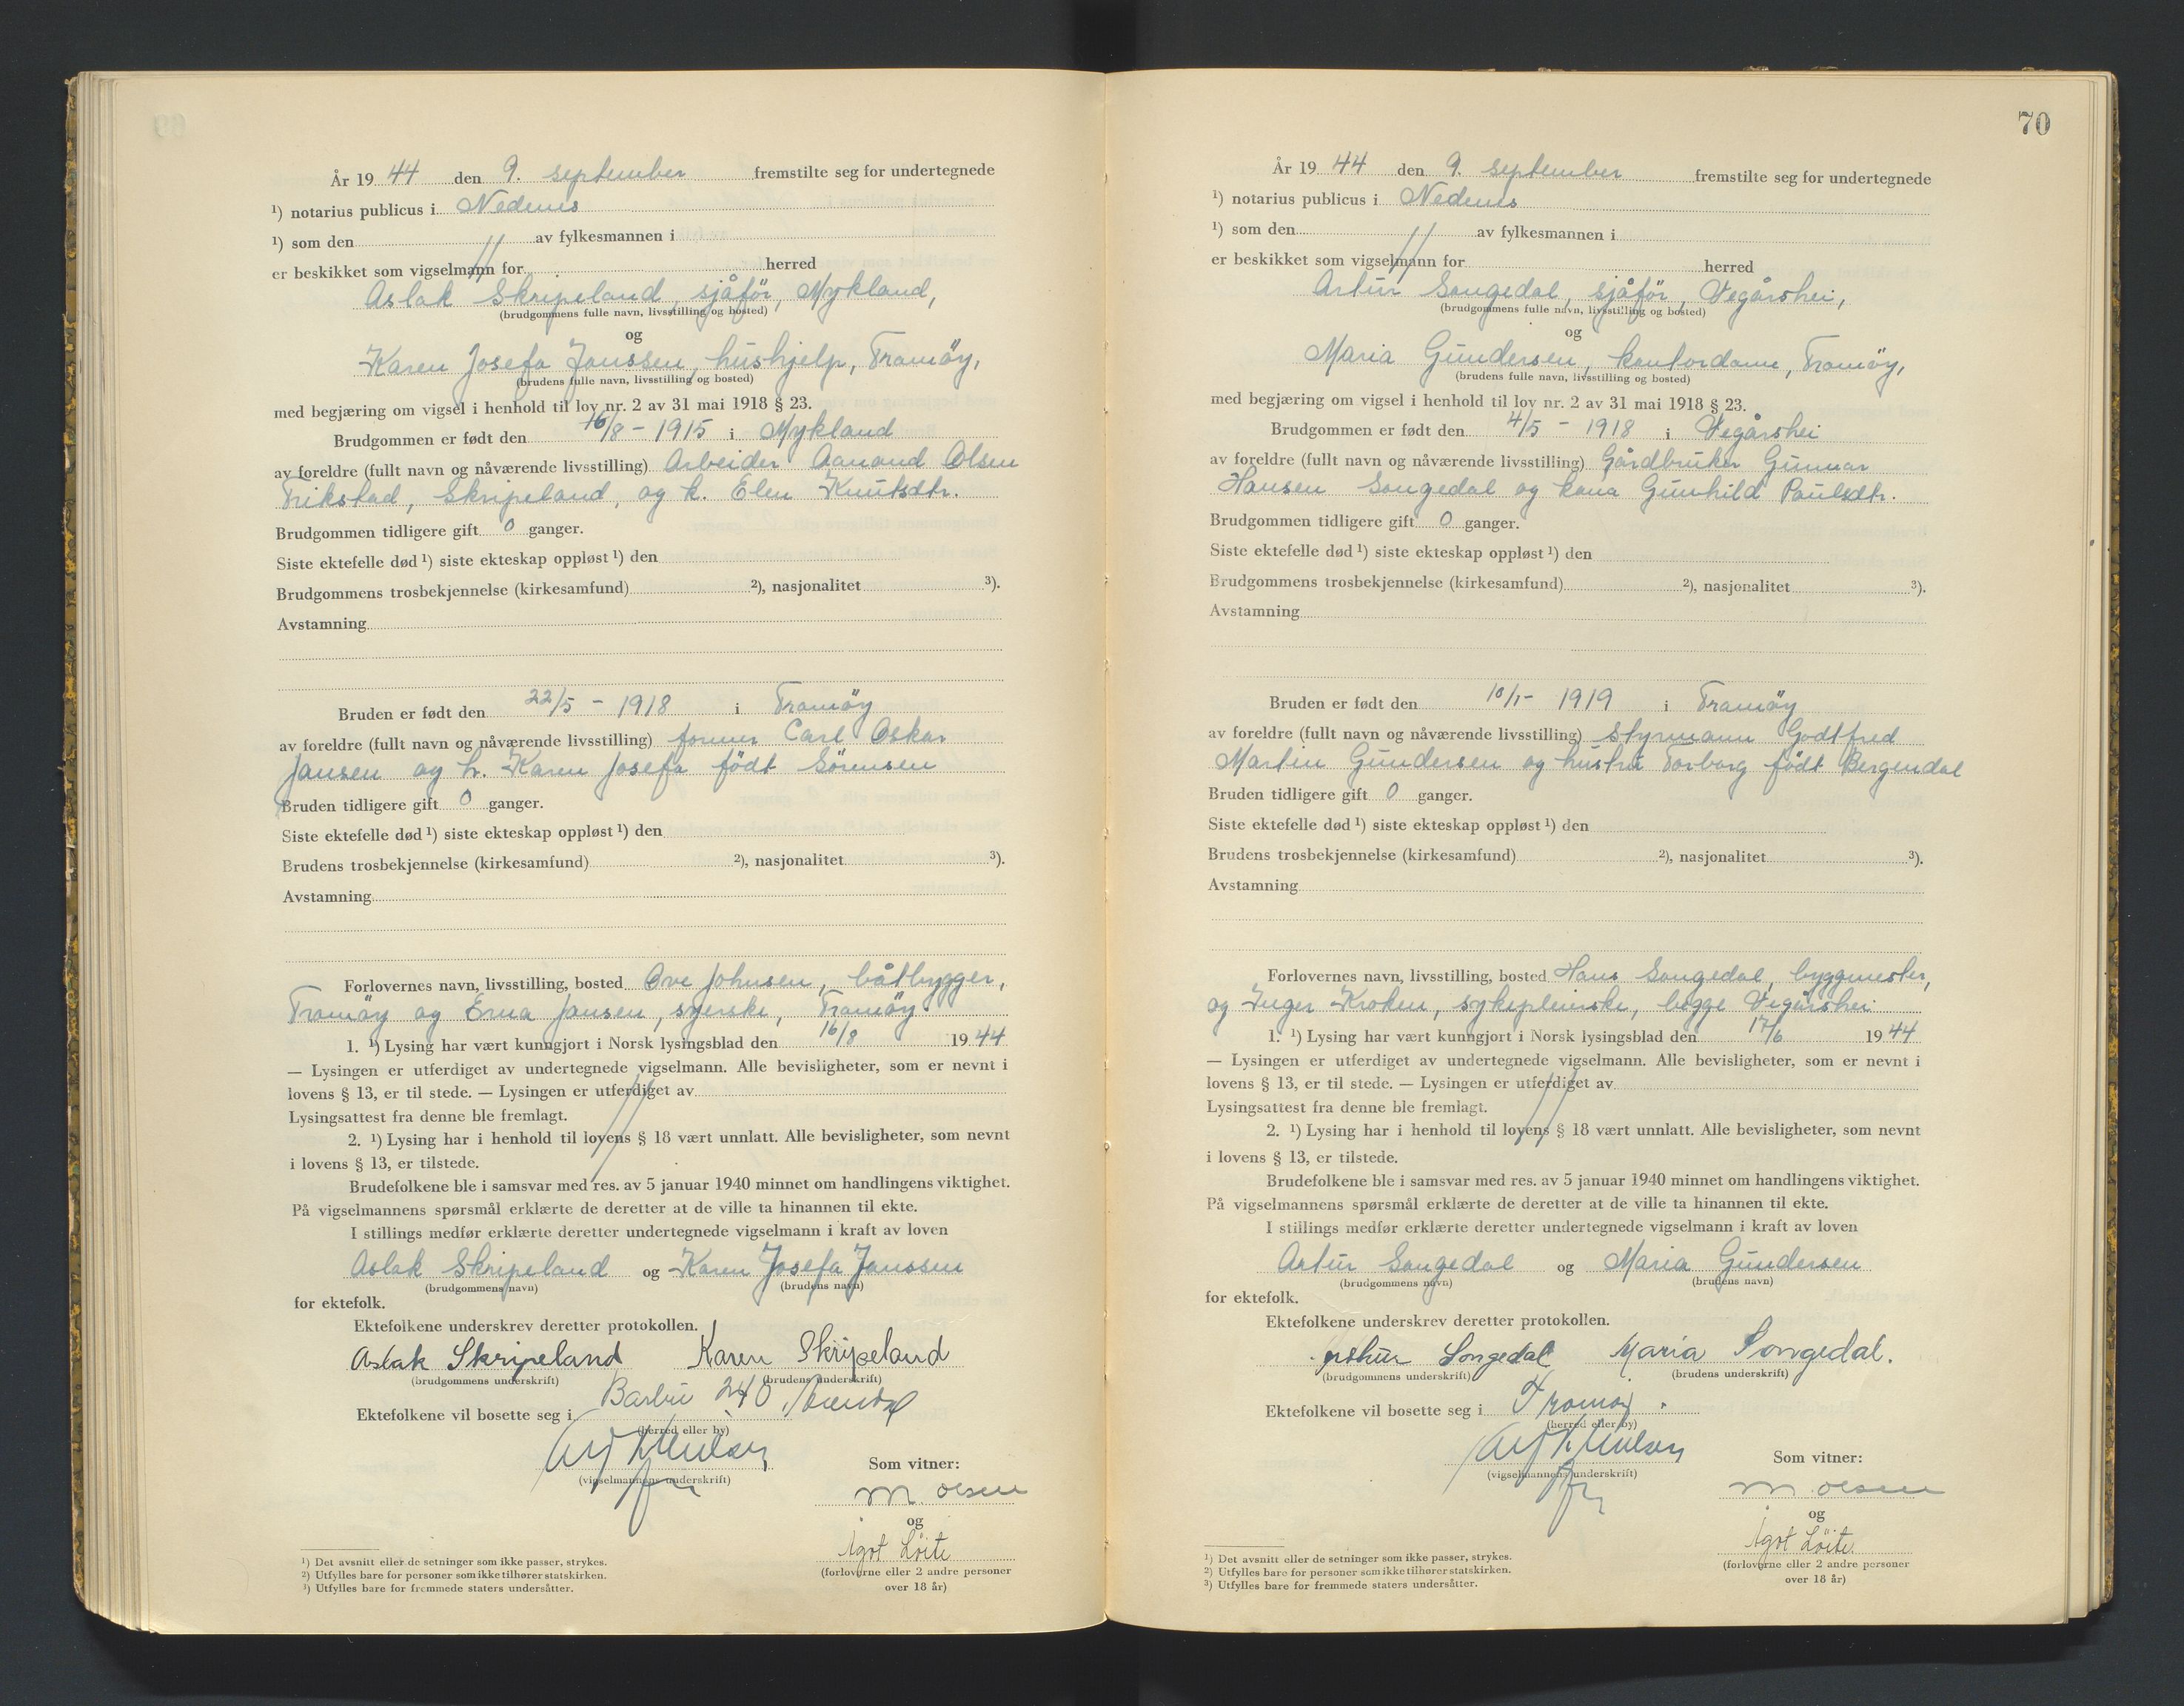 År 19 44 den 9. september fremstilte seg for undertegnede
¹) notarius publicus i Nedenes
¹) som den av fylkesmannen i
er beskikket som vigselmann for herred
Aslak Skripeland, sjåför, Mykland,
(brudgommens fulle navn, livsstilling og bosted)
og
Karen Josefa Janssen, hushjelp, Tromöy,
(brudens fulle navn, livsstilling og bosted)
med begjæring om vigsel i henhold til lov nr. 2 av 31 mai 1918 § 23.
Brudgommen er født den 16/8 - 1915 i Mykland
av foreldre (fullt navn og nåværende livsstilling) Arbeider Aanand Olsen
Trikstad, Skripeland, og k. Elen Knutsdtr.
Brudgommen tidligere gift 0 ganger.
Siste ektefelle død ¹) siste ekteskap oppløst ¹) den
Brudgommens trosbekjennelse (kirkesamfund) ²), nasjonalitet ³).
Avstamning
Bruden er født den 22/5 - 1918 i Tromöy
av foreldre (fullt navn og nåværende livsstilling) former Carl Oskar
Jansen og h. Karen Josefa født Sörensen
Bruden tidligere gift 0 ganger.
Siste ektefelle død ¹) siste ekteskap oppløst ¹) den
Brudens trosbekjennelse (kirkesamfund) ²), nasjonalitet ³).
Avstamning
Forlovernes navn, livsstilling, bosted Ove Johnsen, båtbygger,
Tromöy og Erna Jansen, syerske, Tromöy
1. ¹) Lysing har vært kunngjort i Norsk lysingsblad den 16/8 19 44
— Lysingen er utferdiget av undertegnede vigselmann. Alle bevisligheter, som er nevnt i
lovens § 13, er til stede. — Lysingen er utferdiget av
Lysingsattest fra denne ble fremlagt.
2. ¹) Lysing har i henhold til lovens § 18 vært unnlatt. Alle bevisligheter, som nevnt
i lovens § 13, er tilstede.
Brudefolkene ble i samsvar med res. av 5 januar 1940 minnet om handlingens viktighet.
På vigselmannens spørsmål erklærte de deretter at de ville ta hinannen til ekte.
I stillings medfør erklærte deretter undertegnede vigselmann i kraft av loven
Aslak Skripeland og Karen Josefa Janssen
(brudgommens navn) (brudens navn)
for ektefolk.
Ektefolkene underskrev deretter protokollen.
Aslak Skripeland Karen Skripeland
(brudgommens underskrift) (brudens underskrift)
Ektefolkene vil bosette seg i Barbu 240 Arendal
(herred eller by)
(vigselmannens underskrift)
Som vitner:
M. Olsen
og
Ågot Löite
(forloverne eller 2 andre personer
over 18 år)
¹) Det avsnitt eller de setninger som ikke passer, strykes.
²) Utfylles bare for personer som ikke tilhører statskirken.
³) Utfylles bare for fremmede staters undersåtter.
70
År 19 44 den 9. september fremstilte seg for undertegnede
¹) notarius publicus i Nedenes
¹) som den av fylkesmannen i
er beskikket som vigselmann for herred
Artur Songedal, sjåför, Vegårshei,
(brudgommens fulle navn, livsstilling og bosted)
og
Maria Gundersen, kontordame, Tromöy,
(brudens fulle navn, livsstilling og bosted)
med begjæring om vigsel i henhold til lov nr. 2 av 31 mai 1918 § 23.
Brudgommen er født den 4/5 - 1918 i Vegårshei
av foreldre (fullt navn og nåværende livsstilling) Gårdbruker Gunnar
Hansen Songedal og kona Gunhild Paulsdtr.
Brudgommen tidligere gift 0 ganger.
Siste ektefelle død ¹) siste ekteskap oppløst ¹) den
Brudgommens trosbekjennelse (kirkesamfund) ²), nasjonalitet ³).
Avstamning
Bruden er født den 10/1 - 1919 i Tromöy
av foreldre (fullt navn og nåværende livsstilling) Styrmann Godtfred
Martin Gundersen og hustru Torborg født Bergendal
Bruden tidligere gift 0 ganger.
Siste ektefelle død ¹) siste ekteskap oppløst ¹) den
Brudens trosbekjennelse (kirkesamfund) ²), nasjonalitet ³).
Avstamning
Forlovernes navn, livsstilling, bosted Hans Songedal, byggmester,
og Inger Kroken, sykepleierske, begge Vegårshei
1. ¹) Lysing har vært kunngjort i Norsk lysingsblad den 17/6 19 44
— Lysingen er utferdiget av undertegnede vigselmann. Alle bevisligheter, som er nevnt i
lovens § 13, er til stede. — Lysingen er utferdiget av
Lysingsattest fra denne ble fremlagt.
2. ¹) Lysing har i henhold til lovens § 18 vært unnlatt. Alle bevisligheter, som nevnt
i lovens § 13, er tilstede.
Brudefolkene ble i samsvar med res. av 5 januar 1940 minnet om handlingens viktighet.
På vigselmannens spørsmål erklærte de deretter at de ville ta hinannen til ekte.
I stillings medfør erklærte deretter undertegnede vigselmann i kraft av loven
Artur Songedal og Maria Gundersen
(brudgommens navn) (brudens navn)
for ektefolk.
Ektefolkene underskrev deretter protokollen.
Arthur Songedal Maria Songedal.
(brudgommens underskrift) (brudens underskrift)
Ektefolkene vil bosette seg i Tromöy.
(herred eller by)
(vigselmannens underskrift)
Som vitner:
M. Olsen
og
Ågot Löite
(forloverne eller 2 andre personer
over 18 år)
¹) Det avsnitt eller de setninger som ikke passer, strykes.
²) Utfylles bare for personer som ikke tilhører statskirken.
³) Utfylles bare for fremmede staters undersåtter.